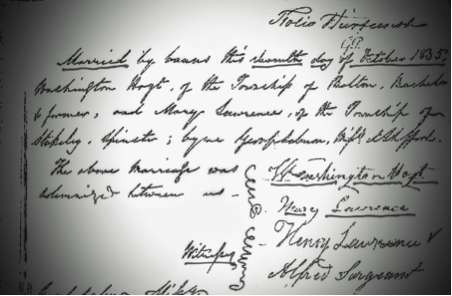 Folio
Married by banns this seventh day of October 1835,
Washington Hoyt, of the Township of Bolton, Bachelor
& farmer, and Mary Lawrence, of the Township of
Stukely, Spinster; by me
The above marriage was
solemnized between us -
Washington Hoyt.
Mary Lawrence
Witness
Henry Lawrence
Alfred Sargeant